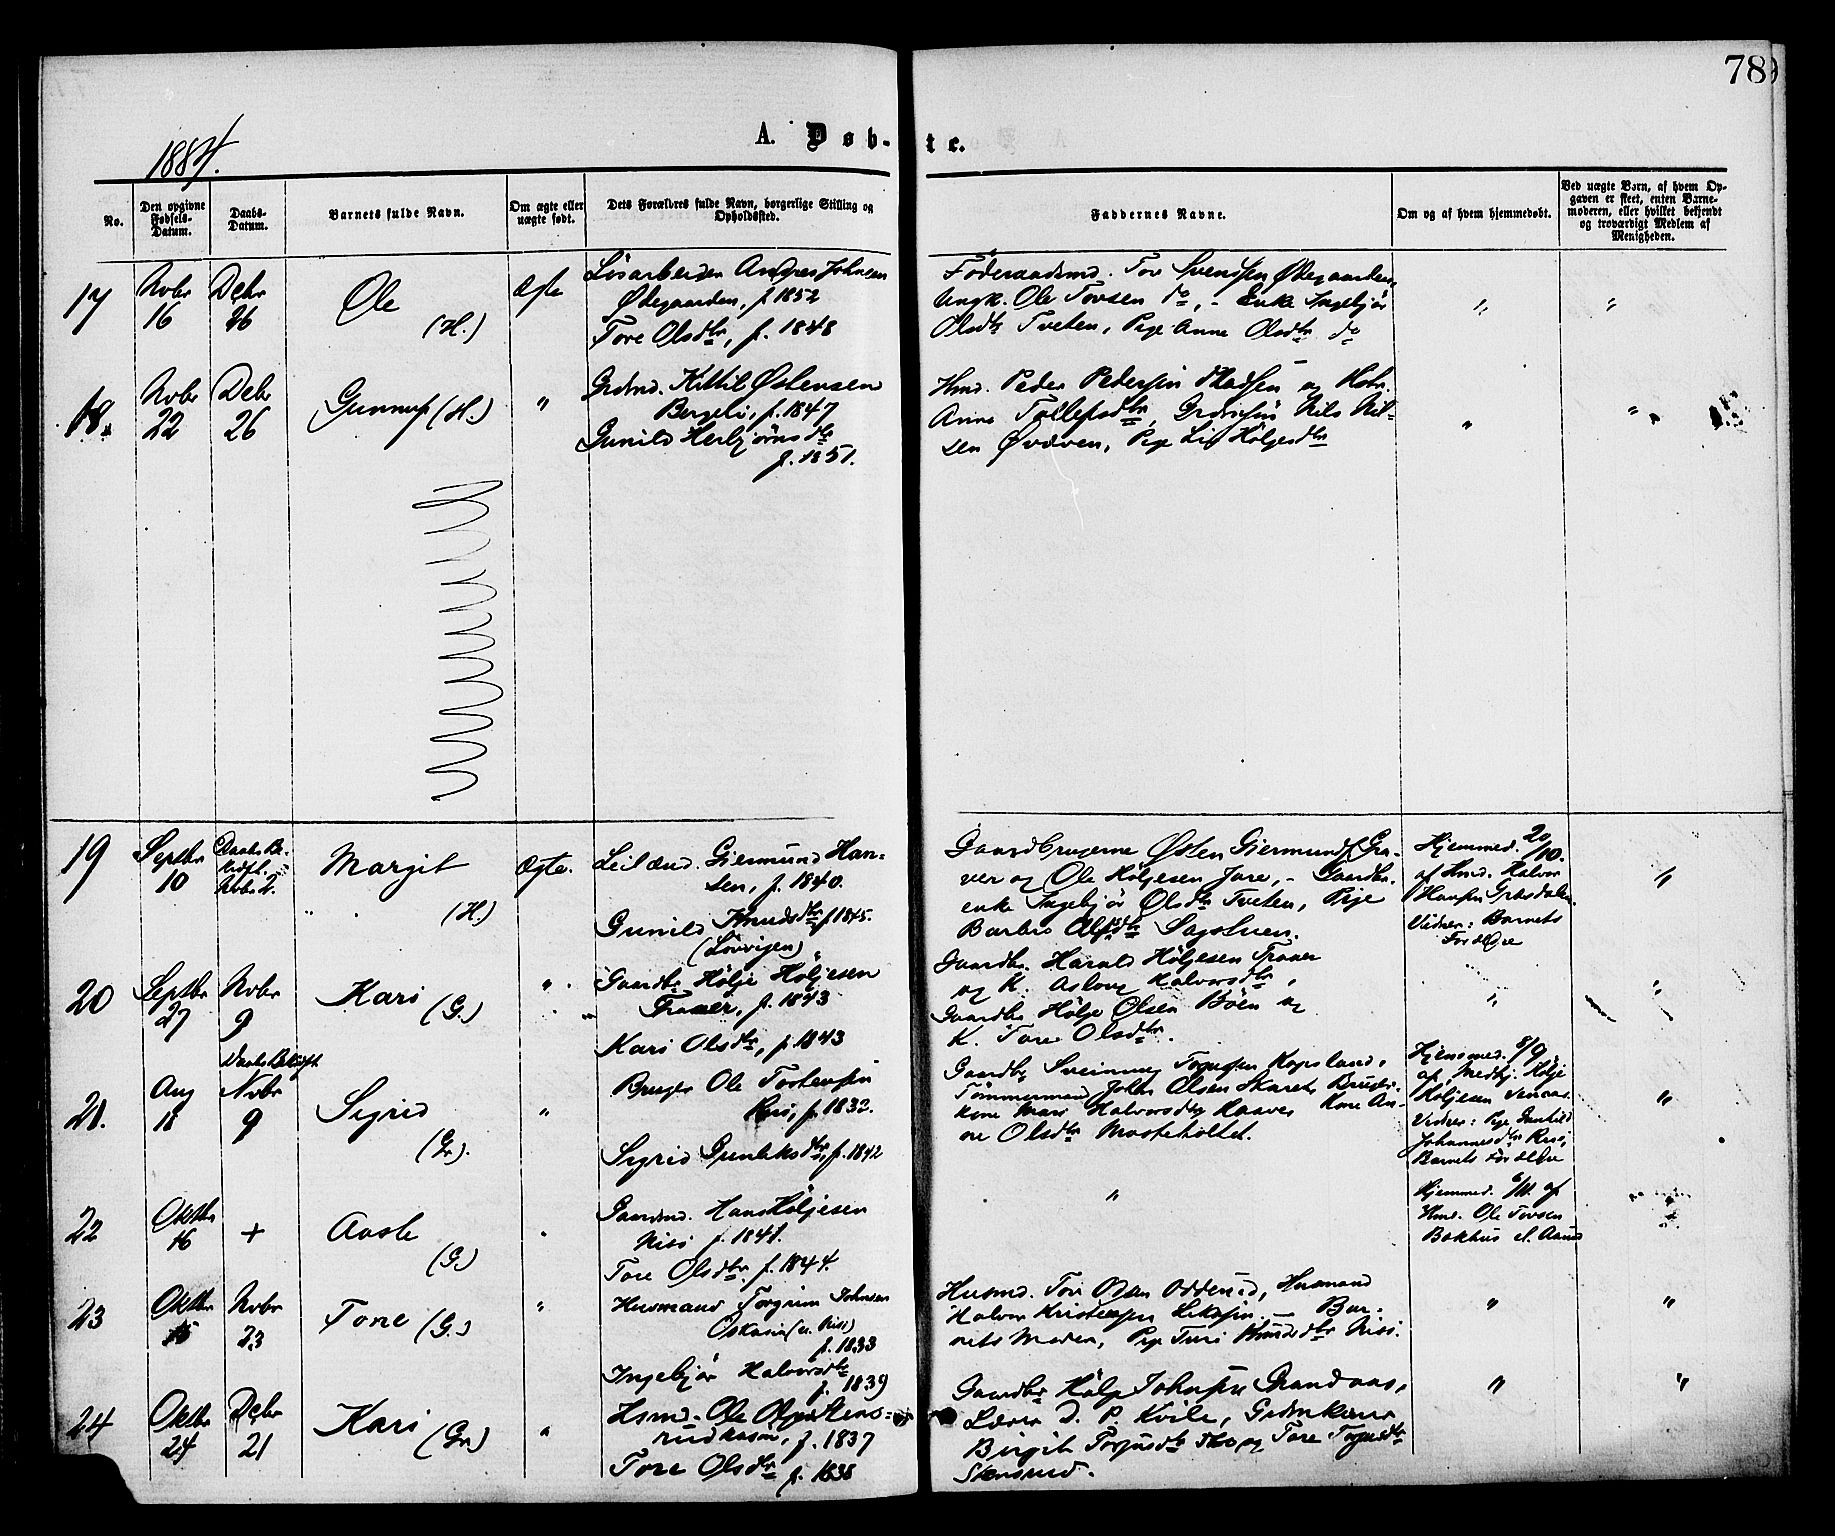 78
1884.
A. Døb-te.
No.
Den opgivne Fødsels-Datum.
Daabs-Datum.
Barnets fulde Navn.
Om ægte eller uægte født.
Dets Forældres fulde Navn, borgerlige Stilling og Opholdssted.
Faddernes Navne.
Om og af hvem hjemmedøbt.
Ved uægte Børn, af hvem Opgaven er skeet, enten Barnemoderen, eller hvilket bekjendt og troværdigt Medlem af Menigheden.
17
Novbr 16
Debr 26
Ole
(H.)
Ægte
Løsarbeider Andres Johnsen
Ødegaarden, f. 1852
Tore Olsdtr, f. 1848
Føderaadsmd. Tov Svenssen Ødegaarden,
Ungk. Ole Tovsen do, - Enke Ingebjør
Olsdtr Tveten, Pige Anne Olsdtr do
"
"
18.
Novbr 22
Debr 26
Gunnuf (H.)
"
Grdmd. Kittil Østensen
Bergeli, f. 1847
Gunild Herbjørnsdtr
f. 1851.
Hmd. Peder Pedersen og
Anne Tollefsdtr, Nils Nil-
sen Øvreven, Pige Liv Høljesdtr
"
"
19
Septbr 10
Novbr 2.
Margit
(H.)
Ægte.
Leilænd. Giermund Han-
sen, f. 1840.
Gunild Knudsdtr f 1845.
(Løvigen)
Gaardbrugerne Østen Giermunds. Gra-
ver og Ole Høljesen Jore, - Gaardbr.
enke Ingebjør Olsdtr Tveten, Pige
Barbro Olsdtr Sagstuen.
Hjemmed. 20/10.
af Hmd. Halvor
Hansen
Vidner: Barnets
Forældre
"
20
Septbr 27
Novbr 9
Kari
(G.)
"
Gaardbr Hølje Høljesen
Fraaer, f. 1843
Kari Olsdtr, f. 1843
Gaardbr. Harald Høljesen Fraaer
og K. Aslaug Halvorsdtr,
Gaardbr Hølje Olsen Bøen og
K. Tore Olsdtr.
"
"
21.
Aug 18
Daabs Bekræft.
Novbr 9
Sigrid
(Gr).
"
Bruger Ole Tostensen
Risi, f. 1832.
Sigrid Gunleksdtr, f. 1842
Gaardbr Sveinung Torjussen Kopsland,
Tømmermand John Olsen Skaret, Bruger-
kone Mari Halvorsdtr Haaver Kone An-
ne Olsdtr Mosteholtet.
Hjemmed. 8/9
af Medhj. Hølje
Høljesen
Vidner: Pige Gunhild
Johannesdtr Risi,
Barnets Forældre
"
22
Oktbr 16
+
Aaste
(G.)
"
Gaardmd. Hans Høljesen
Risi f. 1841.
Tore Olsdtr. f. 1844.
"
Hjemmed. af
Hmd. Ole Tovsen
Bakhus
23
Oktbr 15
Novbr 23
Tone (G.)
"
Husmand Torgrim Johnsen
Oskasin (u. Risi)
f. 1833
Ingebjør Halvorsdtr
f. 1839
Husmd. Tov Olsen Odderud, Husmand
Halvor Kristensen - Bar-
nets Moder, Pige Turi Knudsdtr Risi.
"
"
24
Oktbr 24
Debr 21
Kari
(Gr)
"
Husmd. Ole Olsen Stens-
rudkasin, f. 1837
Tore Olsdtr f. 1838
Gaardbr Hølje Johnsen Grandaas,
Lærer D. P. Kvile, Grdmkone
Birgit Torjusdtr og Tore Torjusdtr
Stensrud.
"
"